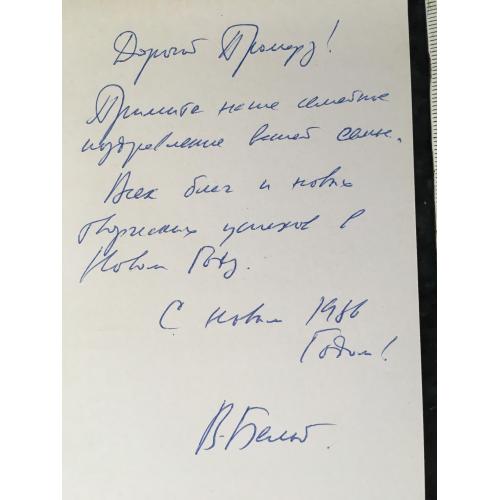 Дорогой !
Примите наше семейное
поздравление вашей семье.
Всех благ и новых
творческих успехов в
Новом Году.
С новым 1986
Годом!
В.